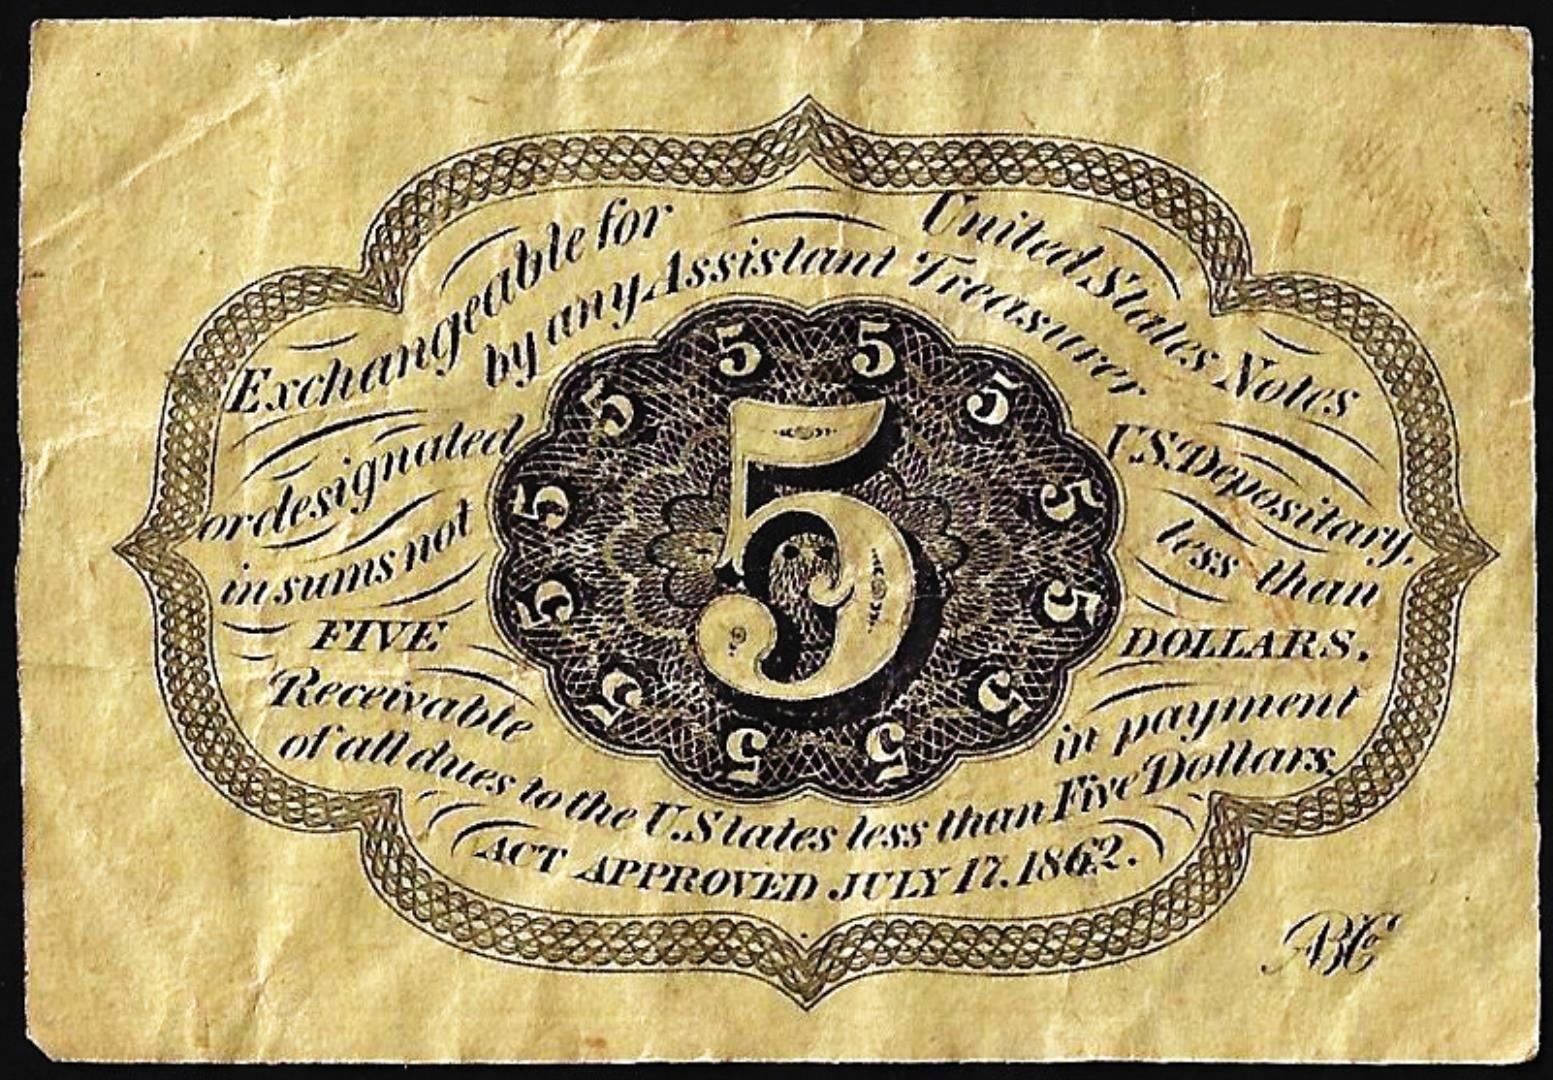 Exchangeable for United States Notes
by any Assistant Treasurer
or designated U.S. Depositary,
in sums not less than
FIVE DOLLARS.
Receivable in payment
of all dues to the U. States less than Five Dollars
ACT APPROVED JULY 17. 1862.
5 5
5 5
5
5 5
5 5
5 5
5 5
ABCo